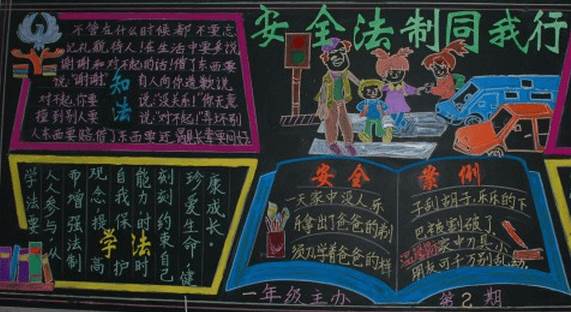 安全法制同我行
不管在什么时候都不要忘
记礼貌待人!在生活中要多说
谢谢和对不起的话!借了东西要
说"谢谢" 人向你道歉说
对不起,你要 说"没关系!"你无意
撞到别人要 说"对不起!"弄坏别
人东西要赔,借了东西要还,遇见长辈要问好
知法
学法要
人人参与,从
而增强法制
观念提高
自我保护
能力时时
刻刻约束自己
珍爱生命,健
康成长.
学法
安全 案例
一天家中没人,乐
乐拿出了爸爸的剃
须刀学着爸爸的样
子刮胡子,乐乐的下
巴被割破了.
家中刀具小
朋友可千万别乱动.
一年级主办 第2期